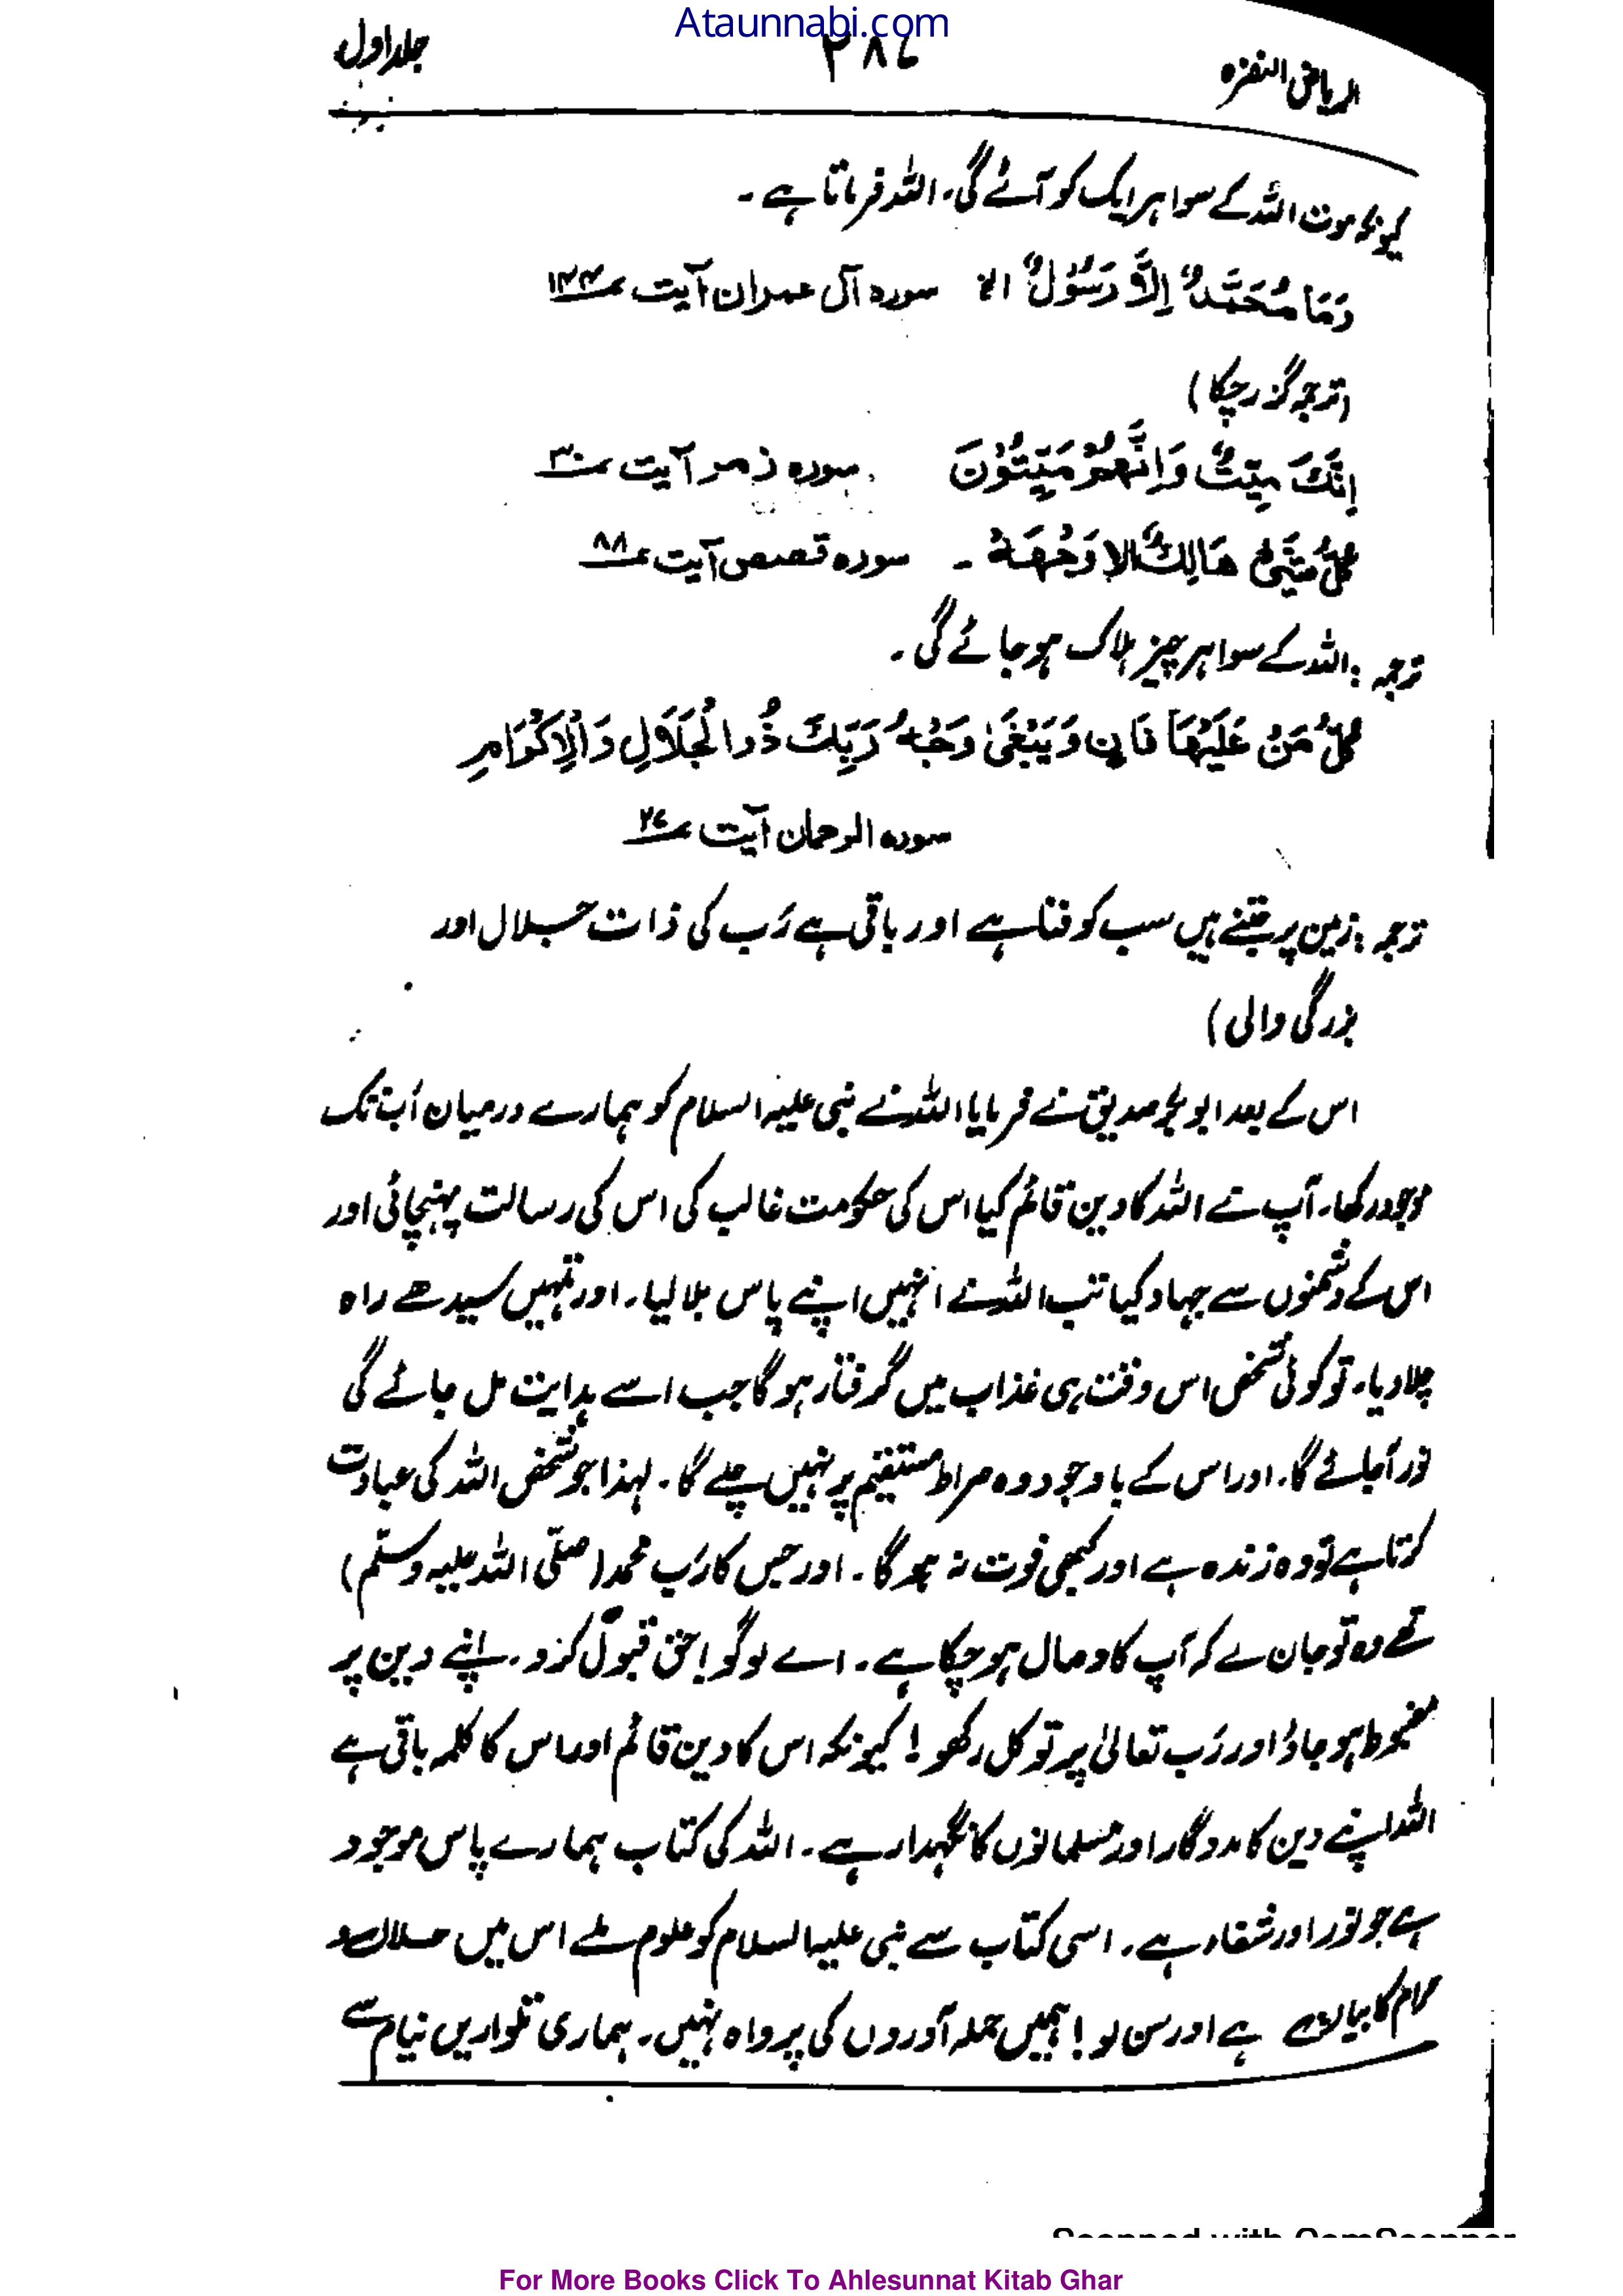 Ataunnabi.com
الریاض النضرہ ۲۸۶ جلد اول
کیونکہ موت اللہ کے سوا ہر ایک کو آئے گی، اللہ فرماتا ہے ۔
وَمَا مُحَمَّدٌ اِلَّا رَسُوْلٌ الخ سورہ آل عمران آیت ۱۴۴
(ترجمہ گزر چکا)
اِنَّکَ مَیِّتٌ وَاِنَّھُمْ مَیِّتُوْنَ سورہ زمر آیت ۳۰
کُلُّ شَیْءٍ ھَالِکٌ الا وَجْهَهٗ ۔ سورہ قصص آیت ۸۸
ترجمہ: اللہ کے سوا ہر چیز ہلاک ہو جائے گی ۔
کُلُّ مَنْ عَلَیْھَا فَانٍ وَیَبْقٰی وَجْهُ رَبِّکَ ذُو الْجَلَالِ وَالْاِکْرَامِ
سورہ الرحمان آیت ۲۷
ترجمہ: زمین پر جتنے ہیں سب کو فنا ہے اور باقی ہے رَب کی ذات جلال اور
بزرگی والی)
اس کے بعد ابو بکر صدیق نے فرمایا اللہ نے نبی علیہ السلام کو ہمارے درمیان اَب تک
موجود رکھا، آپ نے اللہ کا دین قائم کیا اس کی حکومت غالب کی اس کی رسالت پہنچائی اور
اس کے دشمنوں سے جہاد کیا تب اللہ نے انہیں اپنے پاس بلا لیا، اور تمہیں سیدھے راہ
چلا دیا، تو کوئی شخص اس وقت ہی عذاب میں گرفتار ہوگا جب اسے ہدایت مل جائے گی
نور آجائے گا، اور اس کے باوجود وہ صراط مستقیم پر نہیں چلے گا، لہذا جو شخص اللہ کی عبادت
کرتا ہے تو وہ زندہ ہے اور کبھی فوت نہ ہوگا ۔ اور جس کا رَب محمد (صلّی اللہ علیہ وسلّم)
تھے وہ تو جان لے کہ آپ کا وصال ہو چکا ہے ۔ اے لوگو! حق قبول کرو، اپنے دین پر
مضبوط ہو جاؤ اور رَب تعالیٰ پر توکل رکھو! کیونکہ اس کا دین قائم اور اس کا کلمہ باقی ہے
اللہ اپنے دین کا مددگار اور مسلمانوں کا نگہدار ہے ۔ اللہ کی کتاب ہمارے پاس موجود
ہے جو نور اور شفاء ہے، اسی کتاب سے نبی علیہ السلام کو علوم ملے اس میں حلال و
حرام کا بیان ہے اور سن لو! ہمیں حملہ آوروں کی پرواہ نہیں، ہماری تلواریں نیام سے
For More Books Click To Ahlesunnat Kitab Ghar